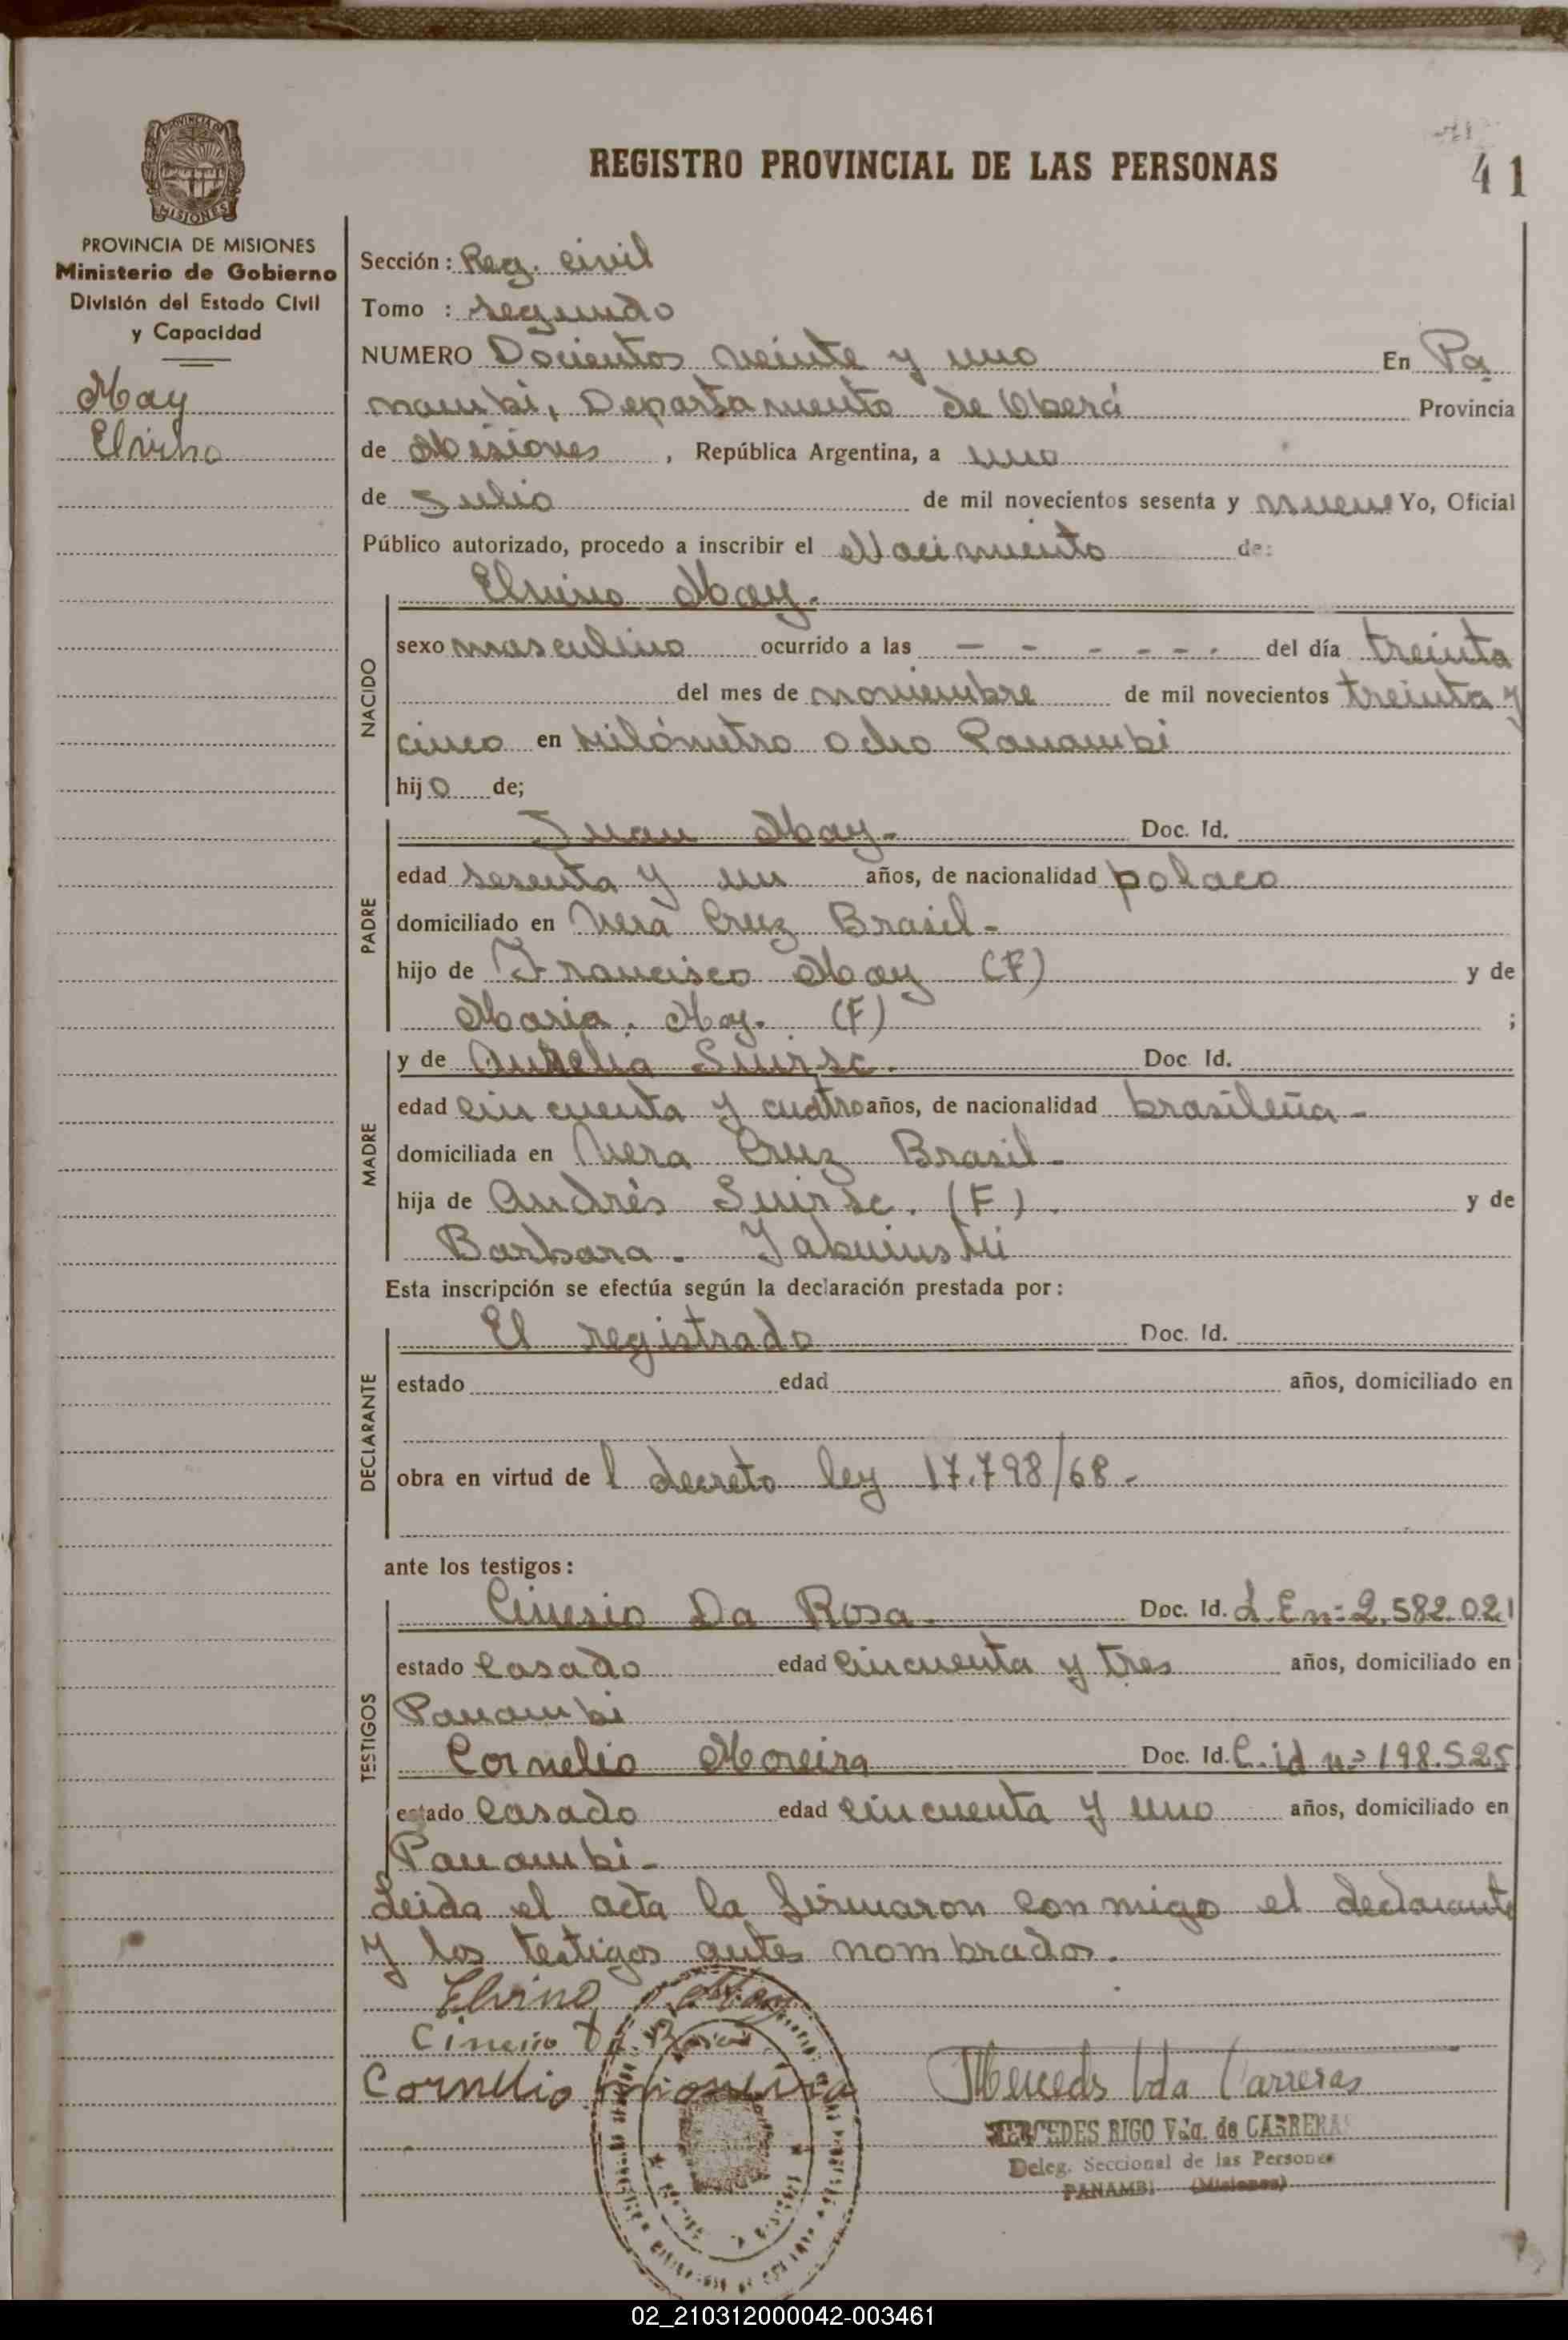 REGISTRO PROVINCIAL DE LAS PERSONAS
41
PROVINCIA DE MISIONES
PROVINCIA DE MISIONES
Ministerio de Gobierno
División del Estado Civil
y Capacidad
May
Elvino
Sección: Reg. civil
Tomo : segundo
NUMERO Docientos veinte y uno En Pa
nambi, Departamento de Oberá Provincia
de Misiones, República Argentina, a uno
de Julio de mil novecientos sesenta y nueve Yo, Oficial
Público autorizado, procedo a inscribir el Nacimiento de:
NACIDO
Elvino May.
sexo masculino ocurrido a las - - - - - - del día treinta
del mes de noviembre de mil novecientos treinta y
cinco en kilómetro ocho Panambi
hijo de;
PADRE
Juan May- Doc. Id.
edad sesenta y un años, de nacionalidad polaco
domiciliado en Vera Cruz Brasil-
hijo de Francisco May (F) y de
Maria. May. (F) ;
MADRE
y de Aurelia Doc. Id.
edad cincuenta y cuatro años, de nacionalidad brasileña-
domiciliada en Vera Cruz Brasil-
hija de Andrés (F). y de
Barbara.
Esta inscripción se efectúa según la declaración prestada por:
DECLARANTE
El registrado Doc. Id.
estado edad años, domiciliado en
obra en virtud de l decreto ley 17.798/68.-
ante los testigos:
TESTIGOS
Cinesio Da Rosa- Doc. Id. L.E.nº 2.582.021
estado Casado edad Cincuenta y tres años, domiciliado en
Panambi
Cornelio Moreira Doc. Id. C.id nº 198.525
estado Casado edad cincuenta y uno años, domiciliado en
Panambi-
Leida el acta la firmaron conmigo el declarante
y los testigos antes nombrados.
Elvino May
Cinesio Da Rosa
Cornelio Moreira
Mercedes Vda Carreras
MERCEDES RIGO Vda. de CARRERAS
Deleg. Seccional de las Personas
PANAMBI (Misiones)
02_210312000042-003461